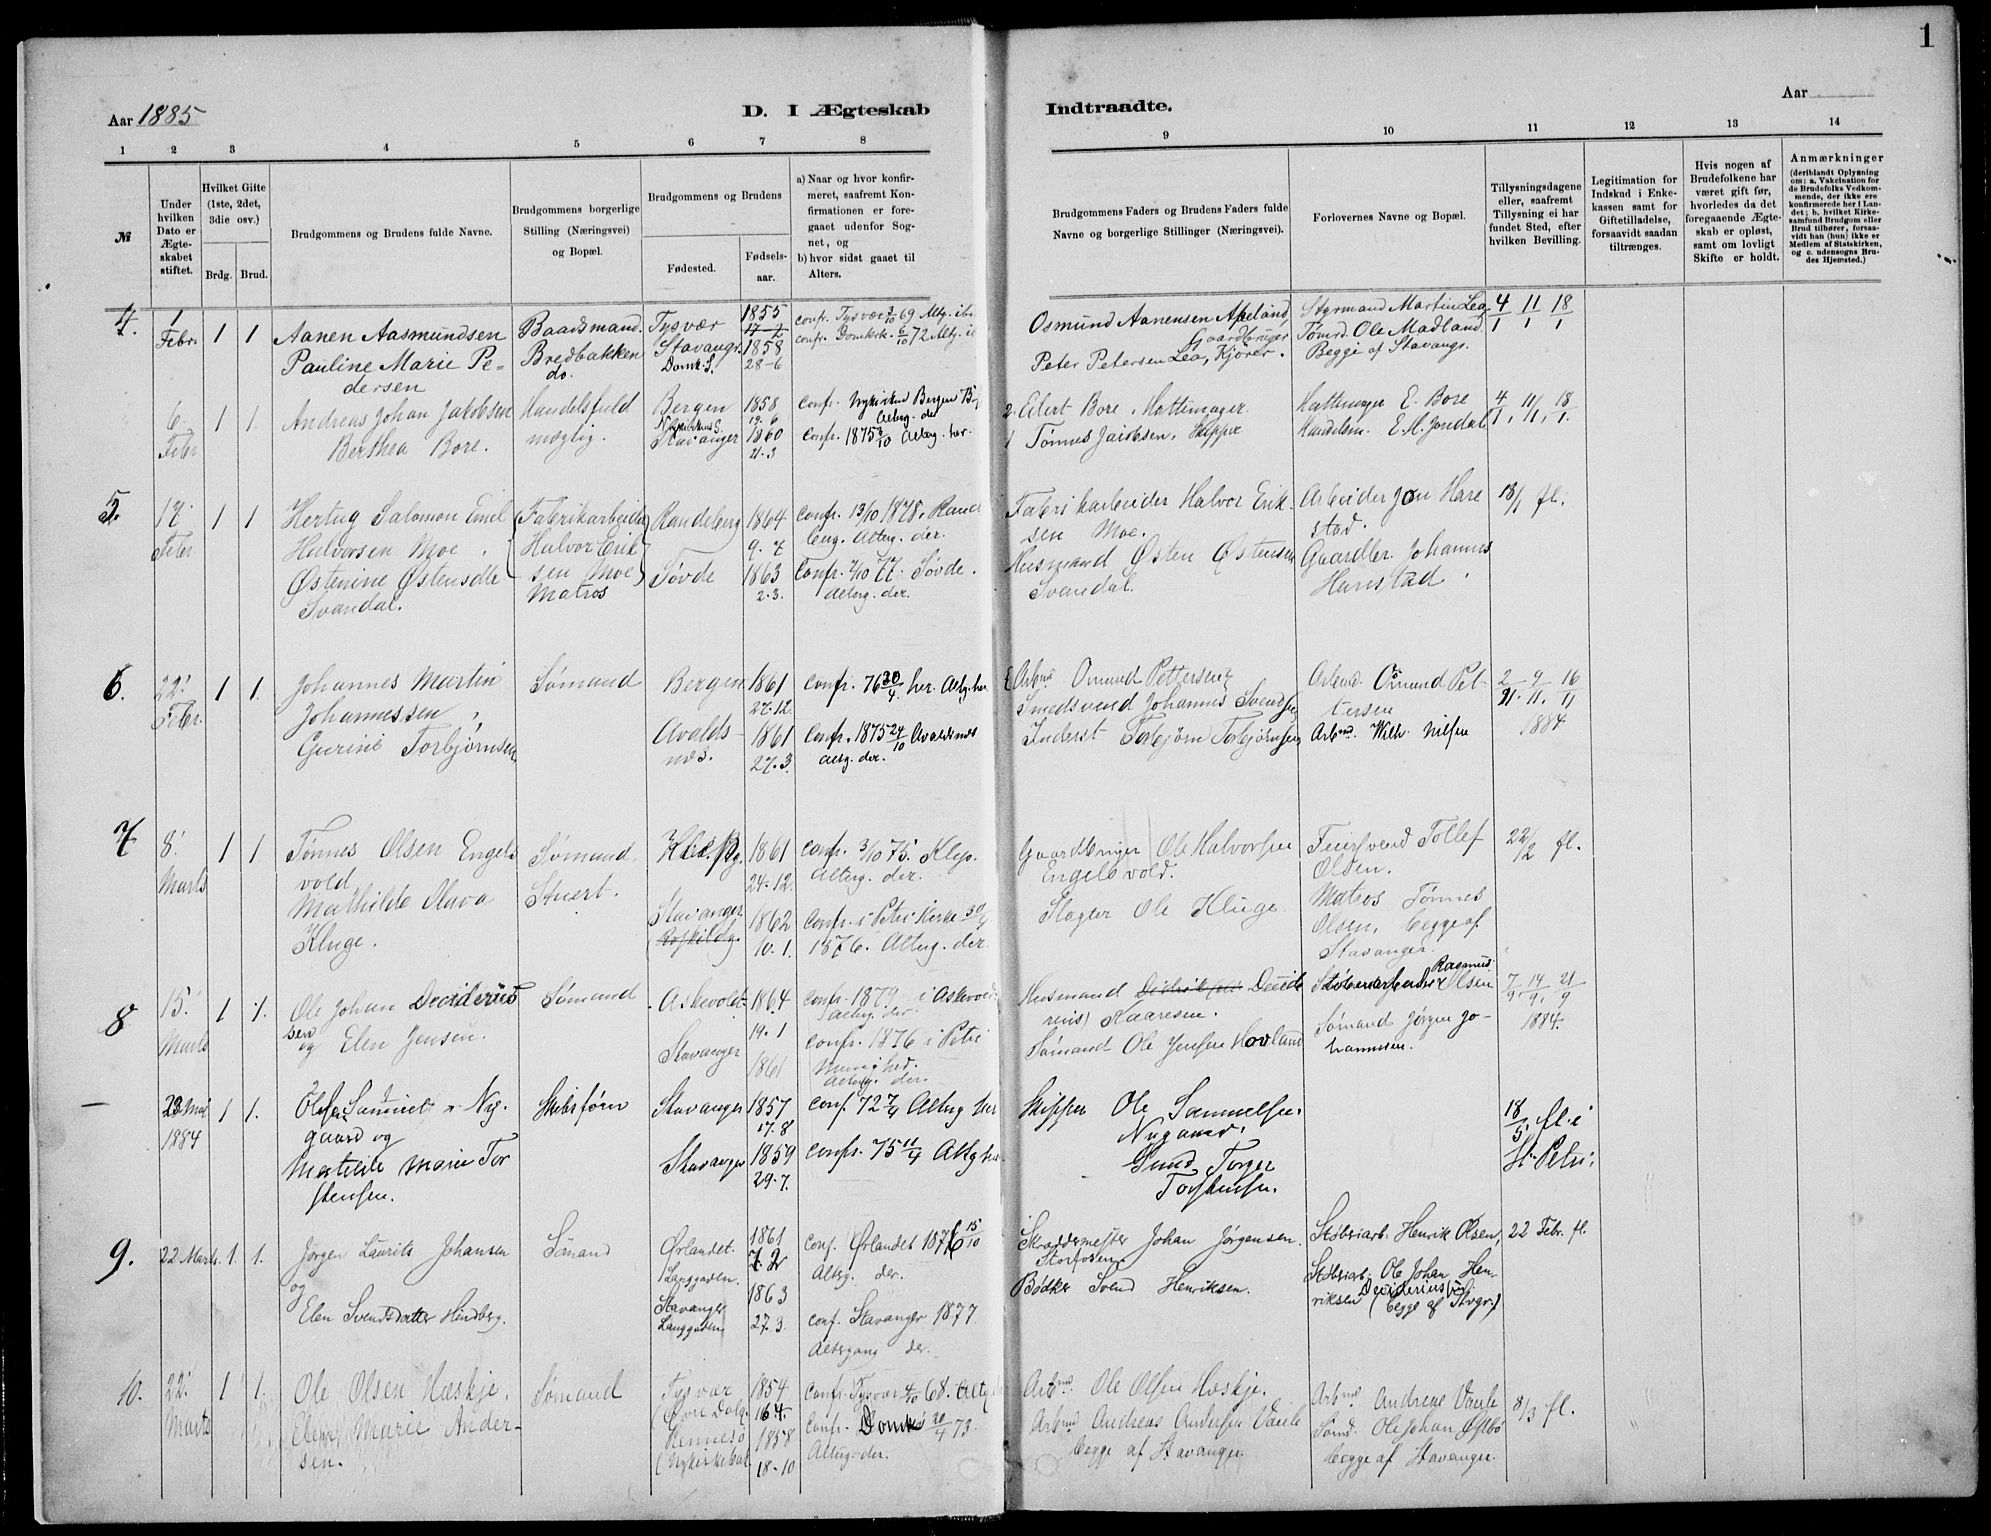 1
Aar 1885
D. I Ægteskab
Indtraadte.
Aar
1 2 3 4 5 6 7 8
9 10 11 12 13 14
№
Under hvilken Dato er Ægteskabet stiftet.
Hvilket Gifte (1ste, 2det, 3die osv.)
Brdg. Brud.
Brudgommens og Brudens fulde Navne.
Brudgommens borgerlige Stilling (Næringsvei) og Bopæl.
Brudgommens og Brudens
Fødested.
Fødselsaar.
a) Naar og hvor konfirmeret, saafremt Konfirmationen er foregaaet udenfor Sognet, og
b) hvor sidst gaaet til Alters.
Brudgommens Faders og Brudens Faders fulde Navne og borgerlige Stillinger (Næringsvei).
Forlovernes Navne og Bopæl.
Tillysningsdagene eller, saafremt Tillysning ei har fundet Sted, efter hvilken Bevilling.
Legitimation for Indskud i Enkekassen samt for Giftetilladelse, forsaavidt saadan tiltrænges.
Hvis nogen af Brudefolkene har været gift før, hvorledes da det foregaaende Ægteskab er opløst, samt om lovligt Skifte er holdt.
Anmærkninger
(deriblandt Oplysning om: a. Vakcination for de Brudefolks Vedkommende, der ikke ere konfirmerede her i Landet; b. hvilket Kirkesamfund Brudgom eller Brud tilhører, forsaavidt han (hun) ikke er Medlem af Statskirken, og c. udensogns Brudes Hjemsted.)
4. 1 Febr. 1 1
Aanen Aasmundsen
Pauline Marie Pe-
dersen
Baadsmand.
Bredbakken
do.
Tysvær
Stavangr.
Domk. S.
1855
17-2
1858
28-6
conf. Tysvær 3/10 69 Altg.
conf. Domkirk. 6/10 72 Altg.
Osmund Aanensen Apeland,
Gaardbruger
Peter Petersen Lea, Kjører.
Styrmand Martin Lea
Tømd. Ole Madland
Begge af Stavangr.
4/1 11/1 18/1
6 Febr 1 1.
Andreas Johan Jakobsen
Berthea Bore.
Handelsfuld
mægtig.
Bergen
Nykirkens S.
Stavanger
1858
19.6
1860
21.3
conf. Nykirken Bergen 75
Altrg. de
conf. 1875 3/10 Altrg. her.
2. Eilert Bore, Hattemager.
1 Tønnes Jacobsen, Skipper
Hattemager E. Bore
Handelsm. E. M. Jondal
4/1, 11/1, 18/1.
5. 17. Febr 1 1
Hertug Salomon Emil
Halvorsen Moe.
Østenine Østensdtr
Svandal.
(Fabrikarbeider
Halvor Erik
sen Moe)
Matros
Randeberg
Søvde
1864
9.7
1863
2.3.
conf. 13/10 1878, Rand
berg. Altrg. der.
Conf. 7/10 77. Søvde.
Altrg. der.
Fabrikarbeider Halvor Erik-
sen Moe.
Husmand Østen Østensen
Svandal.
Arbeider Jon Hare
stad.
Gaardbr. Johannes
Harestad.
18/1 fl.
6. 22. Febr. 1 1.
Johannes Martin
Johannessen
Gurine Torbjørnsen
Sømand
Bergen
Avalds-
nes.
1861
27-12.
1861
27.3.
Conf. 76 30/4. her. Altg. her
Conf. 1875 24/10 Avaldsnes
Altg. der.
Arbmd Omund Pettersen
Smedsvend Johannes Svendsen
Inderst Torbjørn Torbjørnsen
Arbmd. Osmund Pet-
tersen
Arbmd. Wilh. Nilsen
2/11. 9/11. 16/11
1884
7 8. Marts 1 1
Tønnes Olsen Engels
vold
Mathilde Olava
Kluge.
Sømand.
Stuert.
Klep.
Stavanger
1861
24-12.
1862
10.1.
conf. 3/10 75. Klep.
Altrg. der.
conf. i Petri Kirke 30/4
1876. Altrg. der.
Gaardbruger Ole Halvorsen
Engelsvold.
Slagter Ole Kluge
Feiersvend Tollef
Olsen.
Matros Tønnes
Olsen, begge af
Stavanger.
22/2 fl.
8 15. Marts 1 1.
Ole Johan Deciderius
sen
og Elen Jensen.
Sømand
Askevold
Stavanger
1864
19.1
1861
conf. 1879 i Askevold
Altrg. der.
conf. 1876 i Petri
Menighed.
Altrg. der.
Husmand Decide
rius Kaaresen.
Sømand Ole Jensen Hovland
Støberiarbeider Rasmus Olsen
Sømand Jørgen Jo-
hannesen.
7/9. 14/9. 21/9
1884.
23 Mai 1884 1 1.
Ole Samuel Ny-
gaard og
Matilde Marie Tor
stensen.
Skibsfører
Stavanger
Stavanger
1857
17.8
1859
29.7.
conf. 72 7/4 Altrg her
conf. 75 11/4 Altg her
Skipper Ole Samuelsen
Nygaard.
Smed Torger
Torstensen.
18/5. fl. i
St. Petri.
9. 22 Marts. 1. 1.
Jørgen Laurits Johansen
og
Elen Svendsdatter Hindberg.
Sømand
Ørlandet.
Langgaden.
Stavanger
Langgaden
1861
7.2
1863
27.3.
conf. Ørlandet 1876 15/10
Altrg. der.
conf. Stavanger 1877.
Altergang der.
Skræddermester Johan Jørgensen.
Storfosen
Bødker Svend Henriksen.
Støberiarb. Henrik Olsen,
Støberiarb. Ole Johan Hen-
riksen Deciderius
(begge af Stvgr.)
22 Febr. fl.
10. 22. Marts 1 1.
Ole Olsen Hæskje.
Elen Marie Ander-
sen.
Sømand
Tysvær
Rennesø
1854
16.4.
1858
18-10
conf. Tysvær 4/10 68. Altg
conf. Domk 20/4 73.
Altrg. der.
Arbmd. Ole Olsen Hæskje.
Arbmd Andreas Andersen Vaule
begge af Stavanger
Arbmd Andreas Vaule
Sømd. Ole Johan Østbø
begge af Stavanger.
8/3 fl.